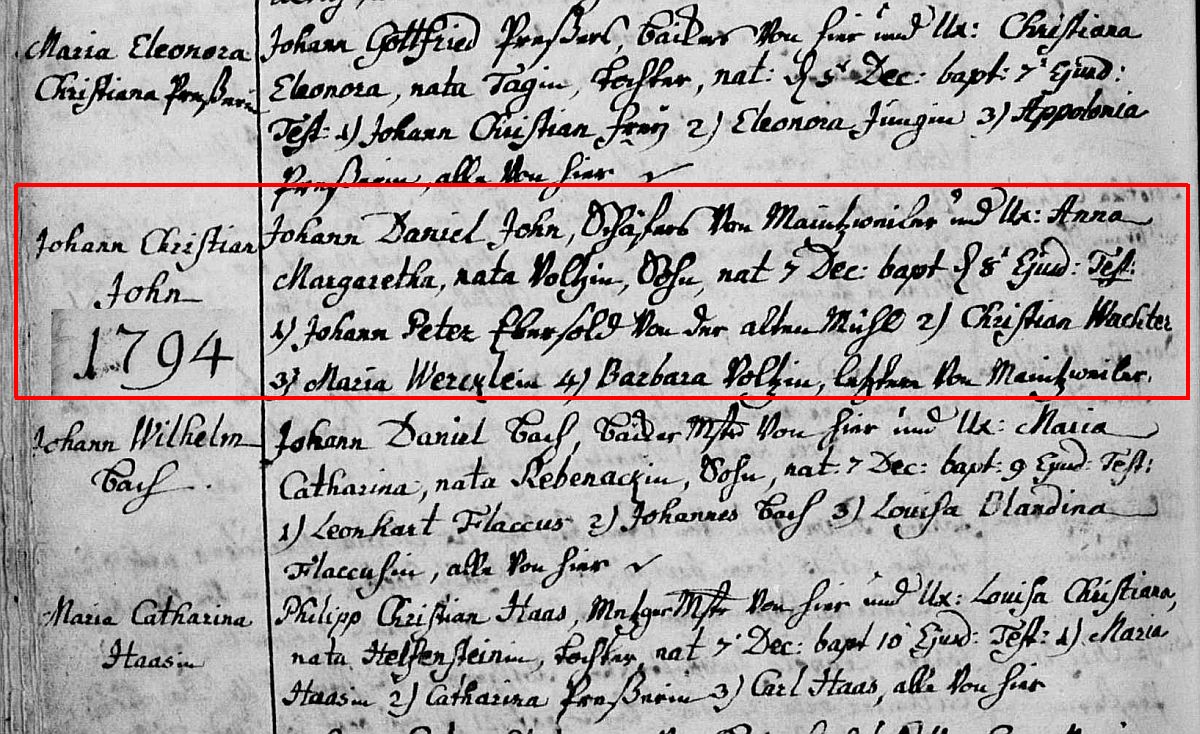 Maria Eleonora
Christiana Preßerin
Johann Gottfried Preßers, Bäckers von hier und Ux: Christiana
Eleonora, nata Tagin, Tochter, nat: d 5t Dec: bapt: 7t Ejusd:
Test: 1) Johann Christian Frey 2) Eleonora Jungin 3) Appolonia
Preßerin, alle von hier
Johann Christian
John
1794
Johann Daniel John, Schäfers von Maintzweiler und Ux: Anna
Margaretha, nata Voltzin, Sohn, nat 7 Dec: bapt d 8t Ejusd: Test:
1) Johann Peter Ebersold von der alten Mühl 2) Christian Wachter
3) Maria Wercklein 4) Barbara Voltzin, letztere von Maintzweiler.
Johann Wilhelm
Bach
Johann Daniel Bach, Bäcker Mstr von hier und Ux: Maria
Catharina, nata Rebenackin, Sohn, nat: 7 Dec: bapt: 9 Ejusd: Test:
1) Leonhart Flaccus 2) Johannes Bach 3) Louisa Blandina
Flaccusin, alle von hier
Maria Catharina
Haasin
Philipp Christian Haas, Metzger Mstr von hier und Ux: Louisa Christiana,
nata Helfensteinin, Tochter, nat 7t Dec: bapt 10t Ejusd: Test: 1) Maria
Haasin 2) Catharina Preßerin 3) Carl Haas, alle von hier